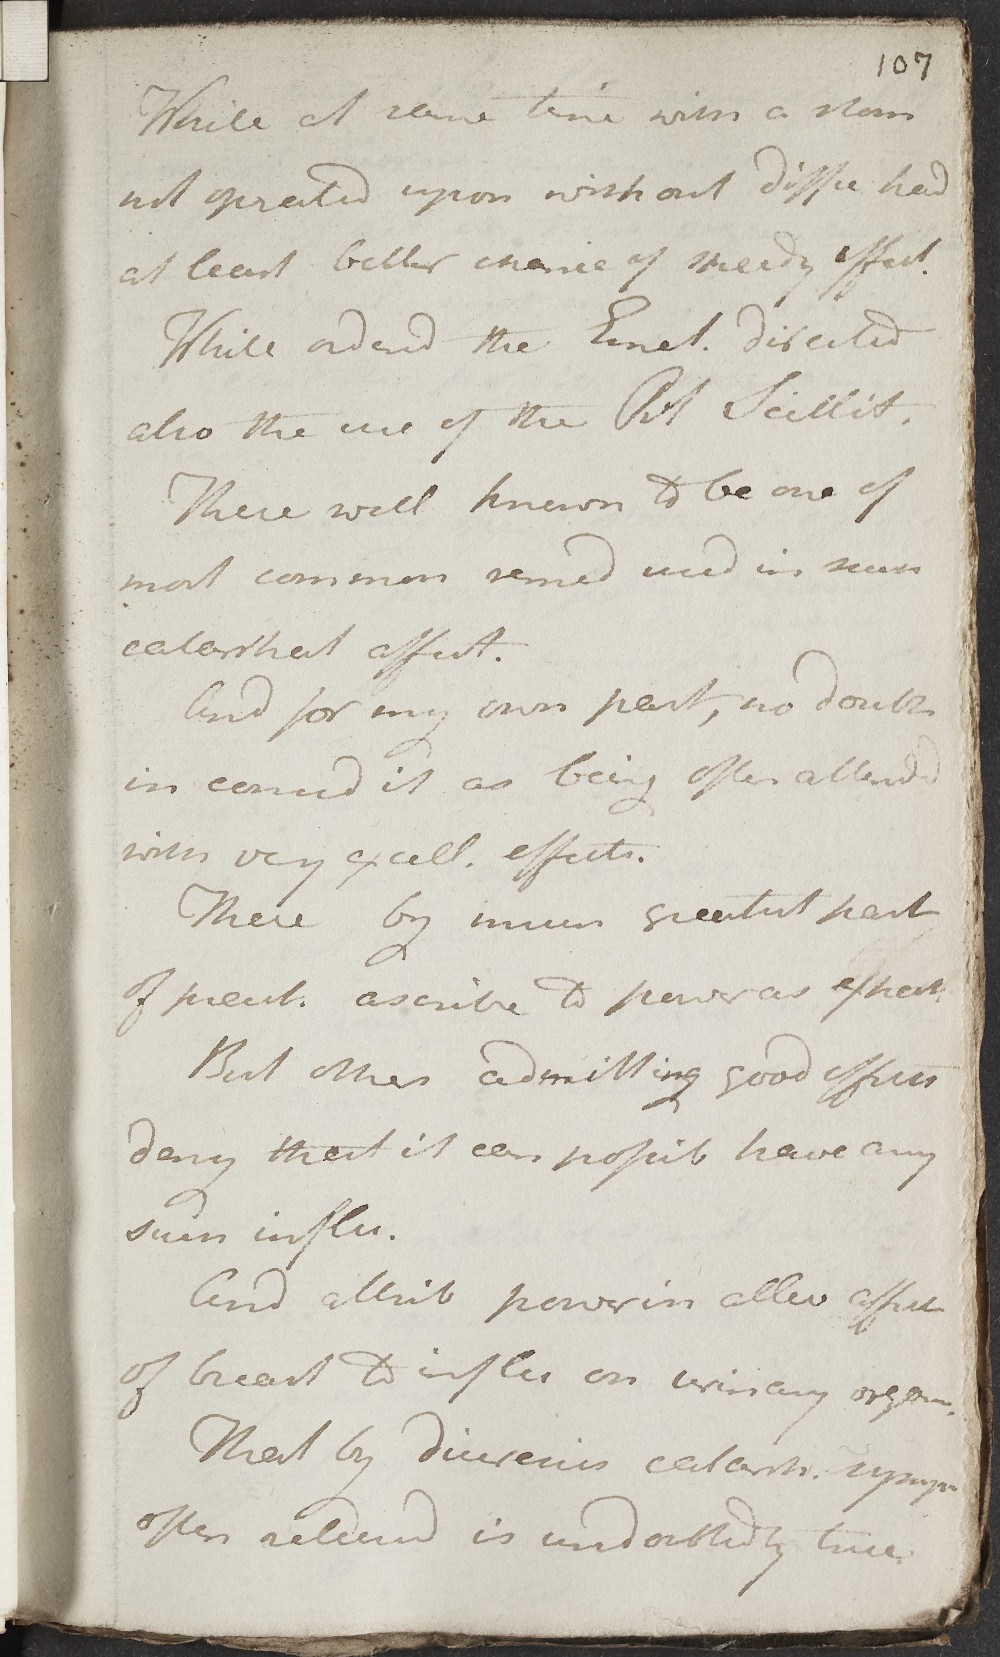 107
While at same time with a stom
not operated upon without diffic had
at least better chance of speedy effect.
While ordend the Emet. directed
also the use of the Pil Scillit.
These well known to be one of
most common remed used in such
catarrhal affect.
And for my own part, no doubt
in consid it as being often attended
with very excell. effects.
These by much greatest part
of pract. ascribe to power as expect.
But others admitting good effects
deny that it can possib have any
such influ.
And attrib power in allev affect
of breast to influ on urinary organs.
That by diuresis catarrh. symp
often relieved is undoubtedly true.